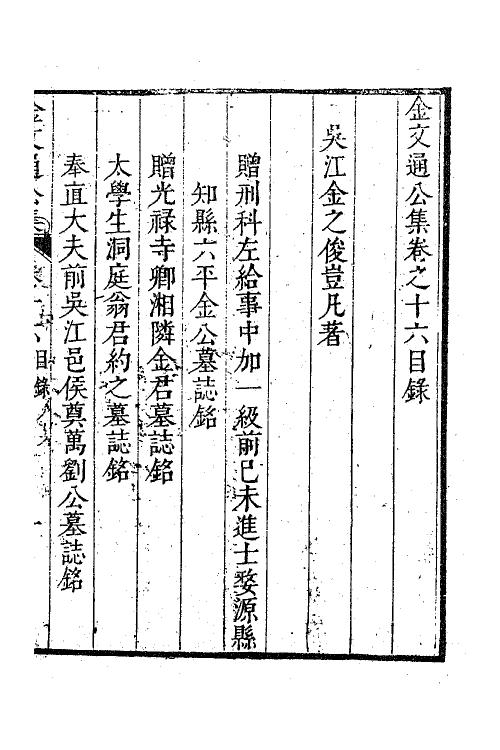 金文通公集卷之十六目錄
吳江金之俊豈凡著
贈刑科左給事中加一級前己未進士婺源縣
知縣六平金公墓誌銘
贈光祿寺卿湘隣金君墓誌銘
太學生洞庭翁君約之墓誌銘
奉直大夫前吳江邑侯奠萬劉公墓誌銘
金文通公集
目錄
一